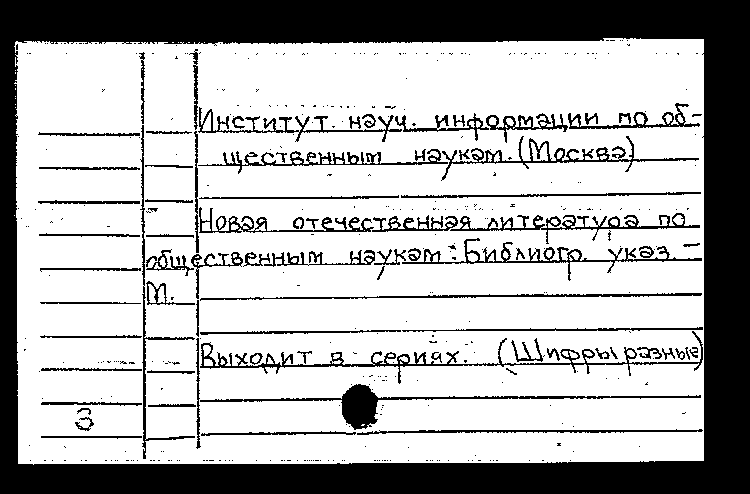 Институт науч. информации по об-
щественным наукам. (Москва)
Новая отечественная литература по
общественным наукам: Библиогр. указ. –
М.
Выходит в сериях. (Шифры разные)
3